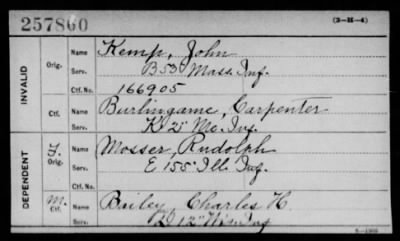 257860
(3-H-4)
INVALID
Orig.
Name Kemp, John
Serv. B 53 Mass. Inf.
Ctf. No. 166905
Ctf.
Name Burlingame, Carpenter
Serv. K 2" Me. Inf.
DEPENDENT
F. Orig.
Name Mosser, Rudolph
Serv. E 155" Ill. Inf.
Ctf. No.
M. Ctf.
Name Bailey, Charles H.
Serv. D 12" Inf